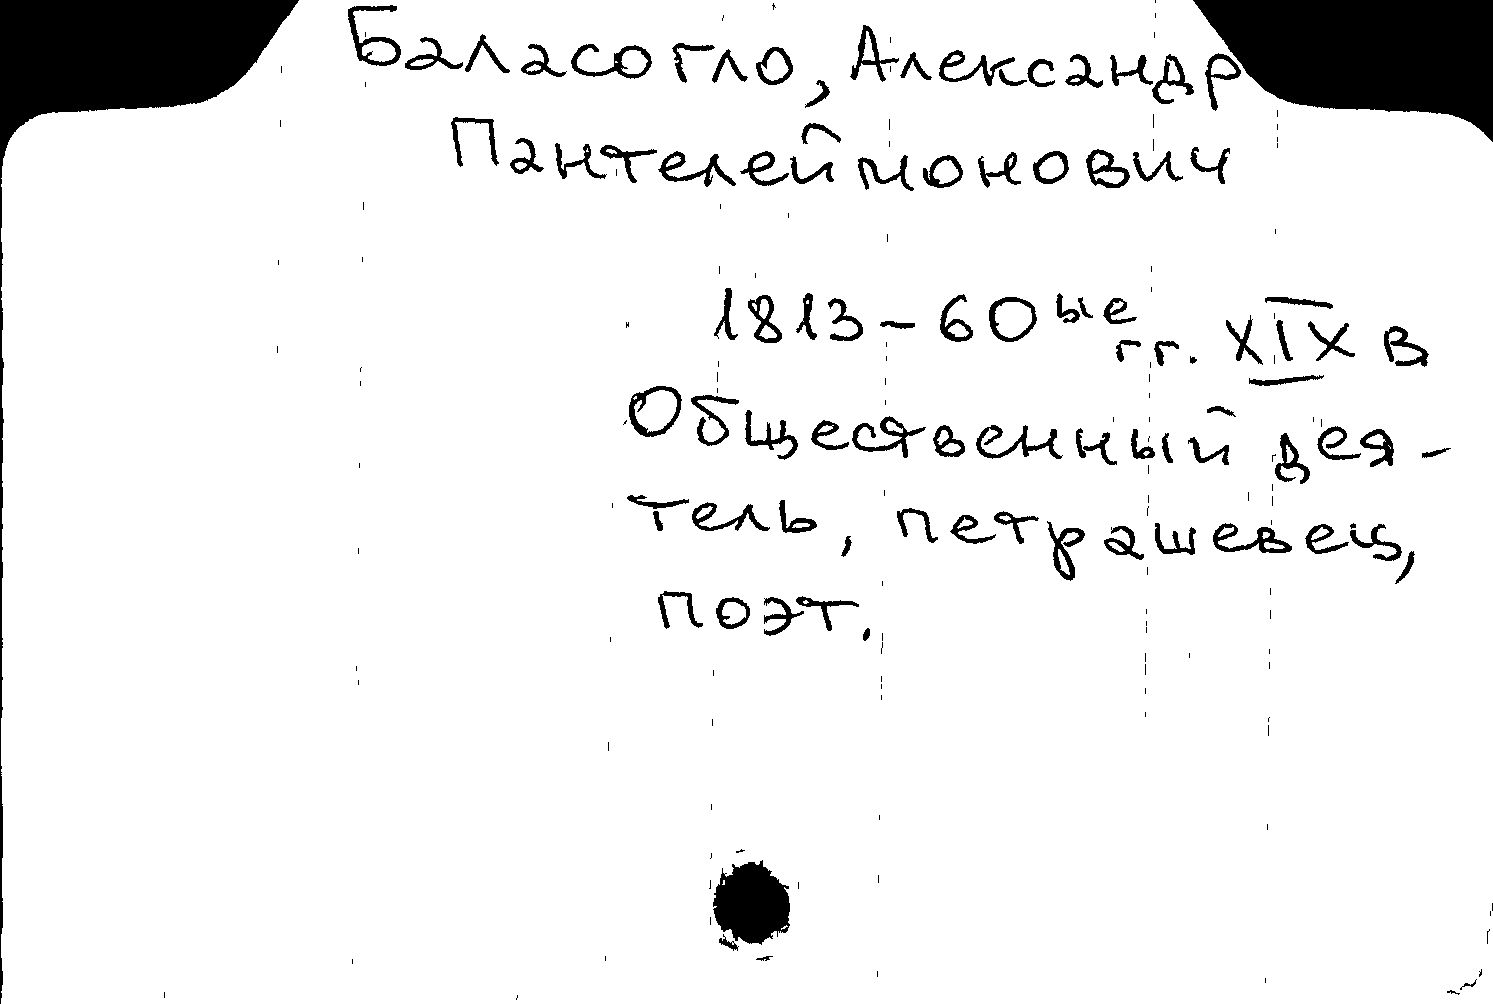 Баласогло, Александр
Пантелеймонович
1813 - 60ые гг. XIX в
Общественный дея-
тель, петрашевец,
поэт.